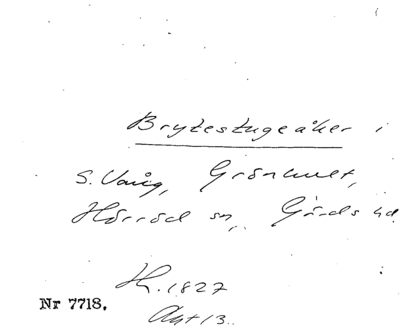 Brytestugeåker i
S. Vång, Grönhult,
Hörröd sn, Gärds hd.
H. 1827
Akt 13.
Nr 7718.